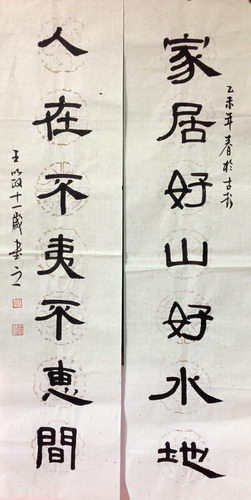 乙未年春於古彭
家居好山好水地
人在不夷不惠間
王 十一歲書之